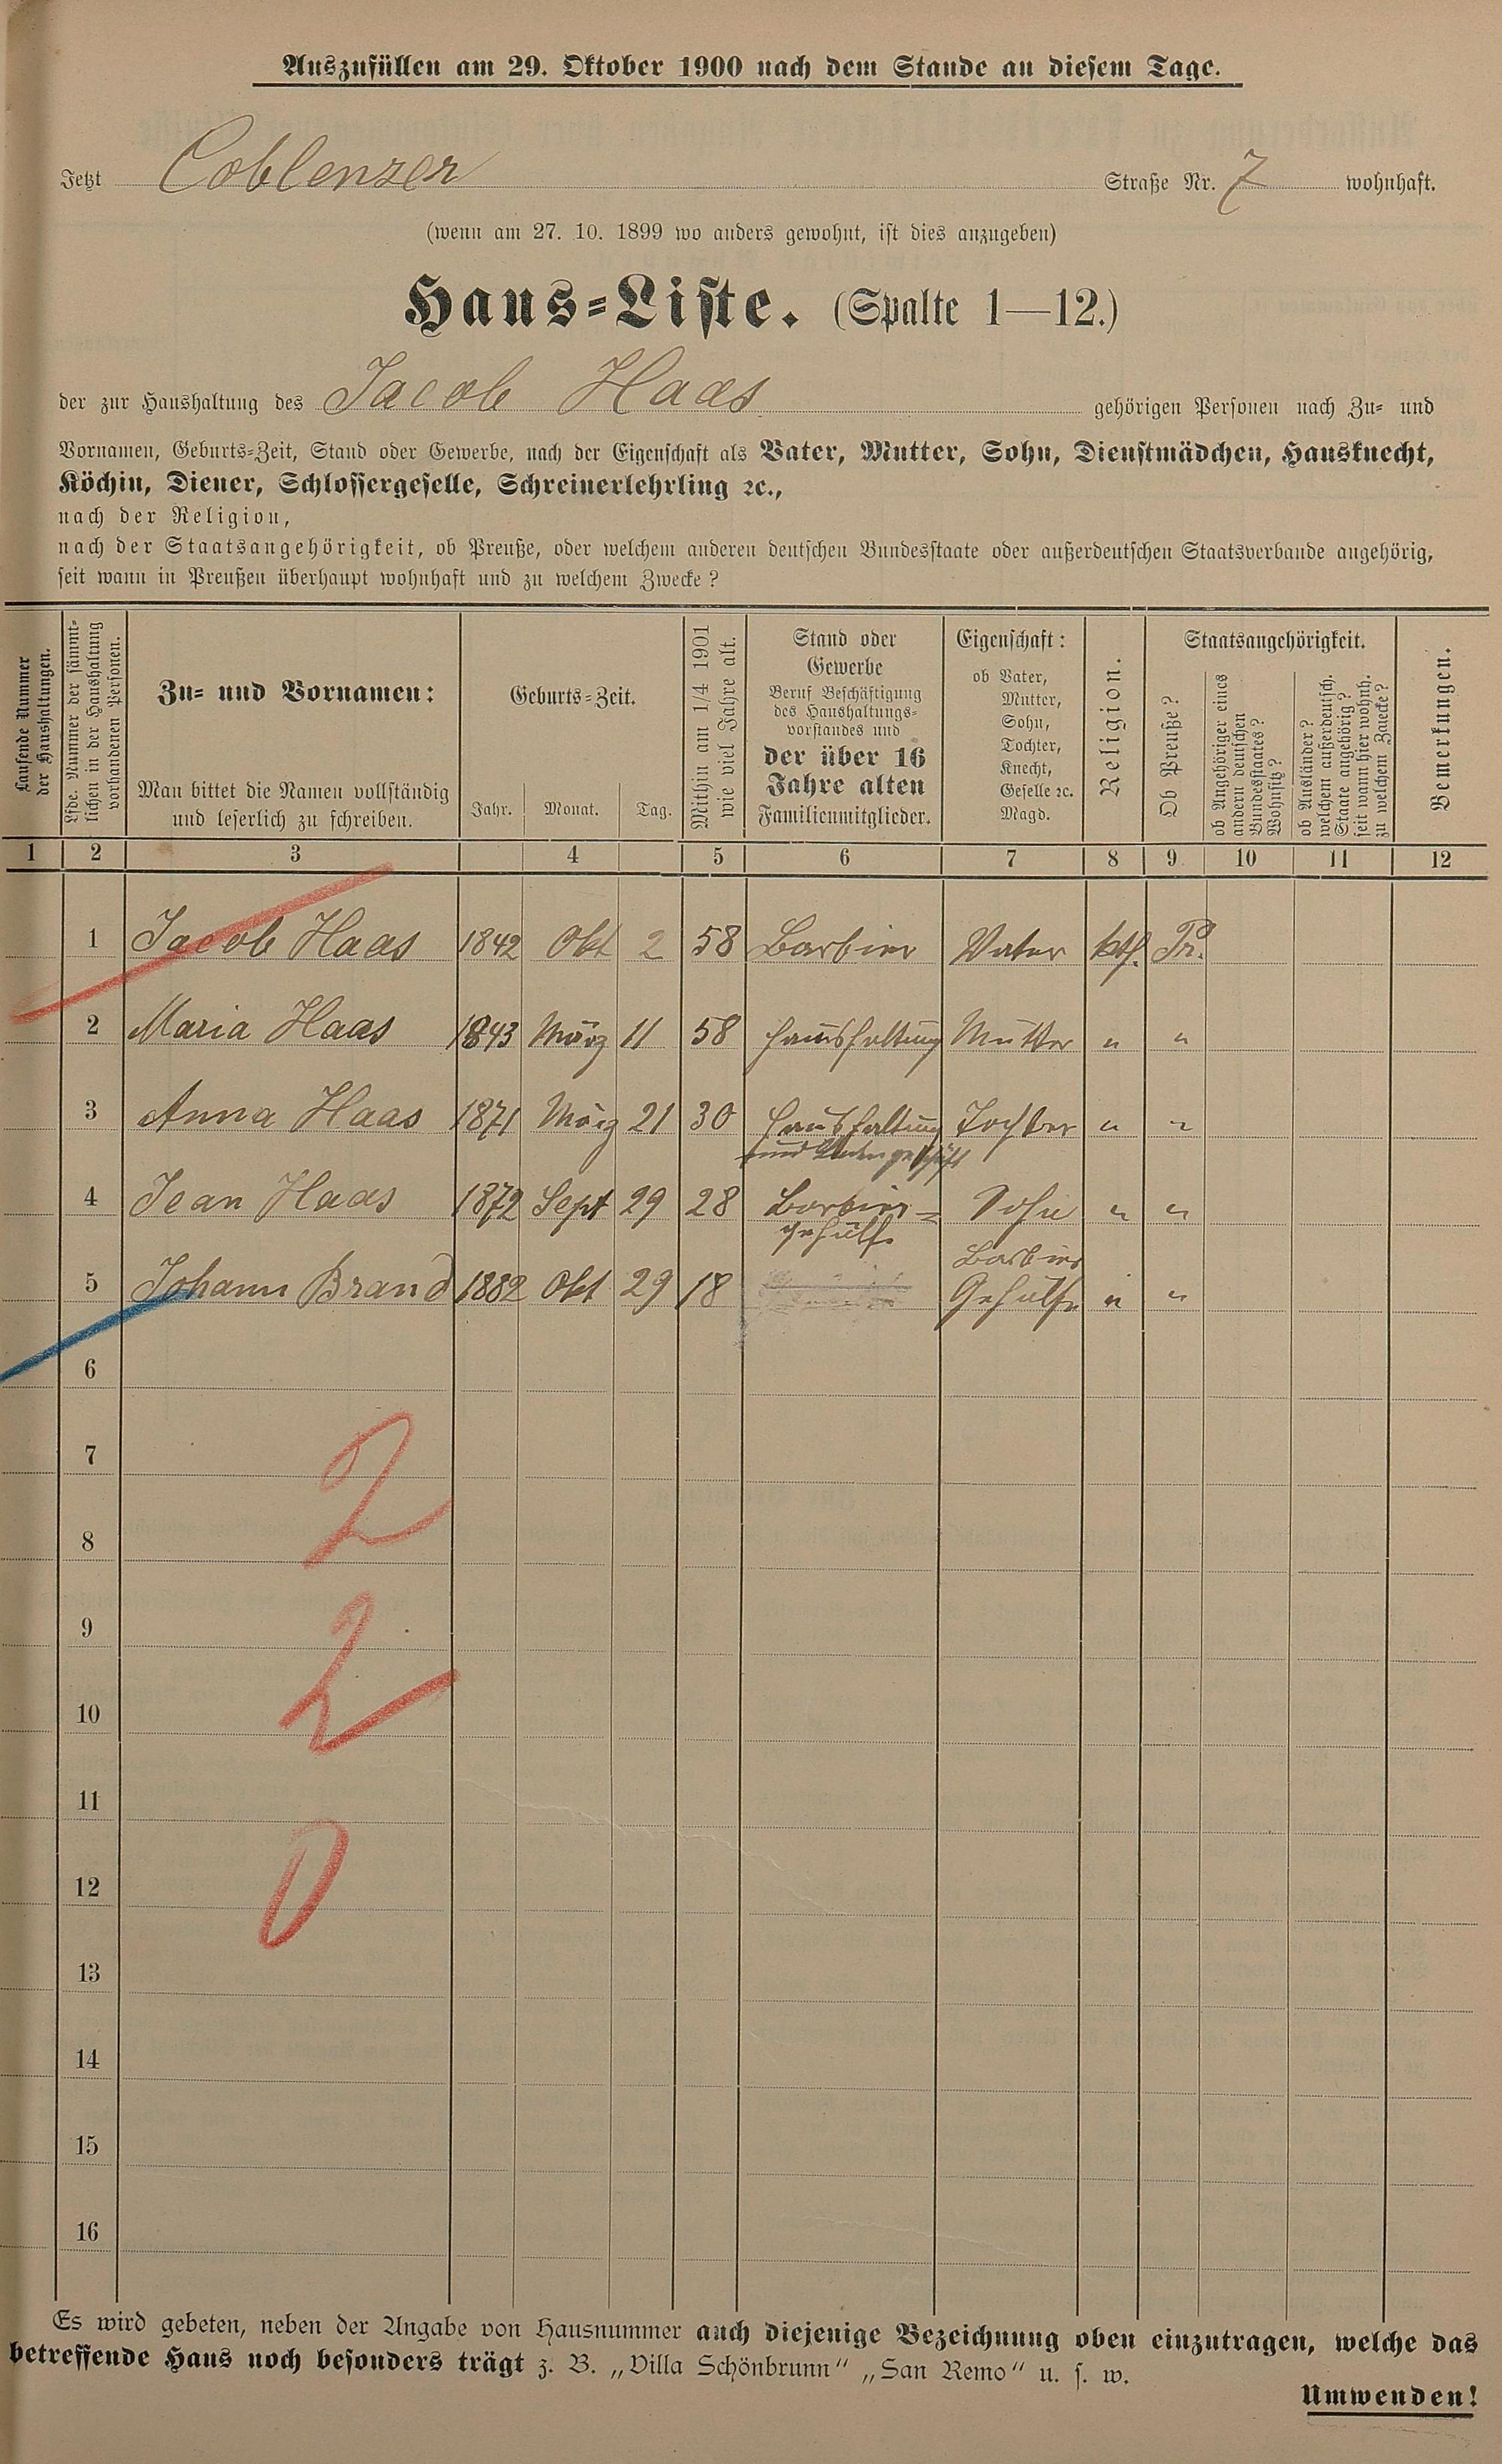 Auszufüllen am 29. Oktober 1900 nach dem Stande an diesem Tage.
Jetzt Coblenzer Straße Nr. 7 wohnhaft.
(wenn am 27. 10. 1899 wo anders gewohnt, ist dies anzugeben)
Haus-Liste. (Spalte 1—12.)
der zur Haushaltung des Jacob Haas gehörigen Personen nach Zu- und
Vornamen, Geburts-Zeit, Stand oder Gewerbe, nach der Eigenschaft als Vater, Mutter, Sohn, Dienstmädchen, Hausknecht,
Köchin, Diener, Schlossergeselle, Schreinerlehrling ꝛc.,
nach der Religion,
nach der Staatsangehörigkeit, ob Preuße, oder welchem anderen deutschen Bundesstaate oder außerdeutschen Staatsverbande angehörig,
seit wann in Preußen überhaupt wohnhaft und zu welchem Zwecke?
Laufende Nummer
der Haushaltungen.
Lfde. Nummer der sämmt-
lichen in der Haushaltung
vorhandenen Personen.
Zu- und Vornamen:
Man bittet die Namen vollständig
und leserlich zu schreiben.
Geburts-Zeit.
Jahr. Monat. Tag.
Mithin am 1/4 1901
wie viel Jahre alt.
Stand oder
Gewerbe
Beruf Beschäftigung
des Haushaltungs-
vorstandes und
der über 16
Jahre alten
Familienmitglieder.
Eigenschaft:
ob Vater,
Mutter,
Sohn,
Tochter,
Knecht,
Geselle ꝛc.
Magd.
Religion.
Staatsangehörigkeit.
Ob Preuße?
ob Angehöriger eines
andern deutschen
Bundesstaates?
Wohnsitz?
ob Ausländer?
welchem außerdeutsch.
Staate angehörig?
seit wann hier wohnh.
zu welchem Zwecke?
Bemerkungen.
1 2 3 4 5 6 7 8 9 10 11 12
1 Jacob Haas 1842 Okt 2 58 Barbier Vater kth. Pr.
2 Maria Haas 1843 März 11 58 Haushaltung Mutter " "
3 Anna Haas 1871 März 21 30 Haushaltung Tochter " "
und
4 Jean Haas 1872 Sept 29 28 Barbier- Sohn " "
gehülfe
Barbier
5 Johann Brand 1882 Okt 29 18 Gehülfe " "
6
7
2
8
9
2
10
11
12
0
13
14
15
16
Es wird gebeten, neben der Angabe von Hausnummer auch diejenige Bezeichnung oben einzutragen, welche das
betreffende Haus noch besonders trägt z. B. „Villa Schönbrunn“ „San Remo“ u. s. w.
Umwenden!